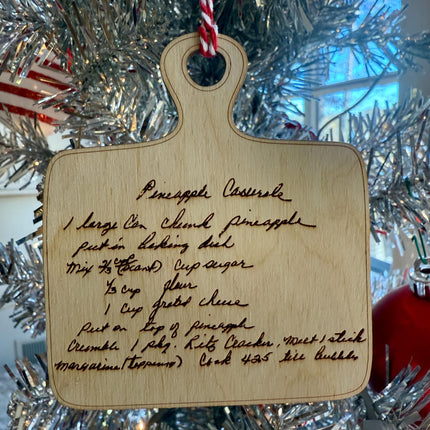 Pineapple Casserole
1 large Can chunk pineapple
put in baking dish
Mix 2/3 cup (scant) cup sugar
1/3 cup flour
1 cup grated cheese
Put on top of pineapple
Crumble 1 pkg. Ritz Cracker, Melt 1 stick
margarine (topping) Cook 425 till bubbles